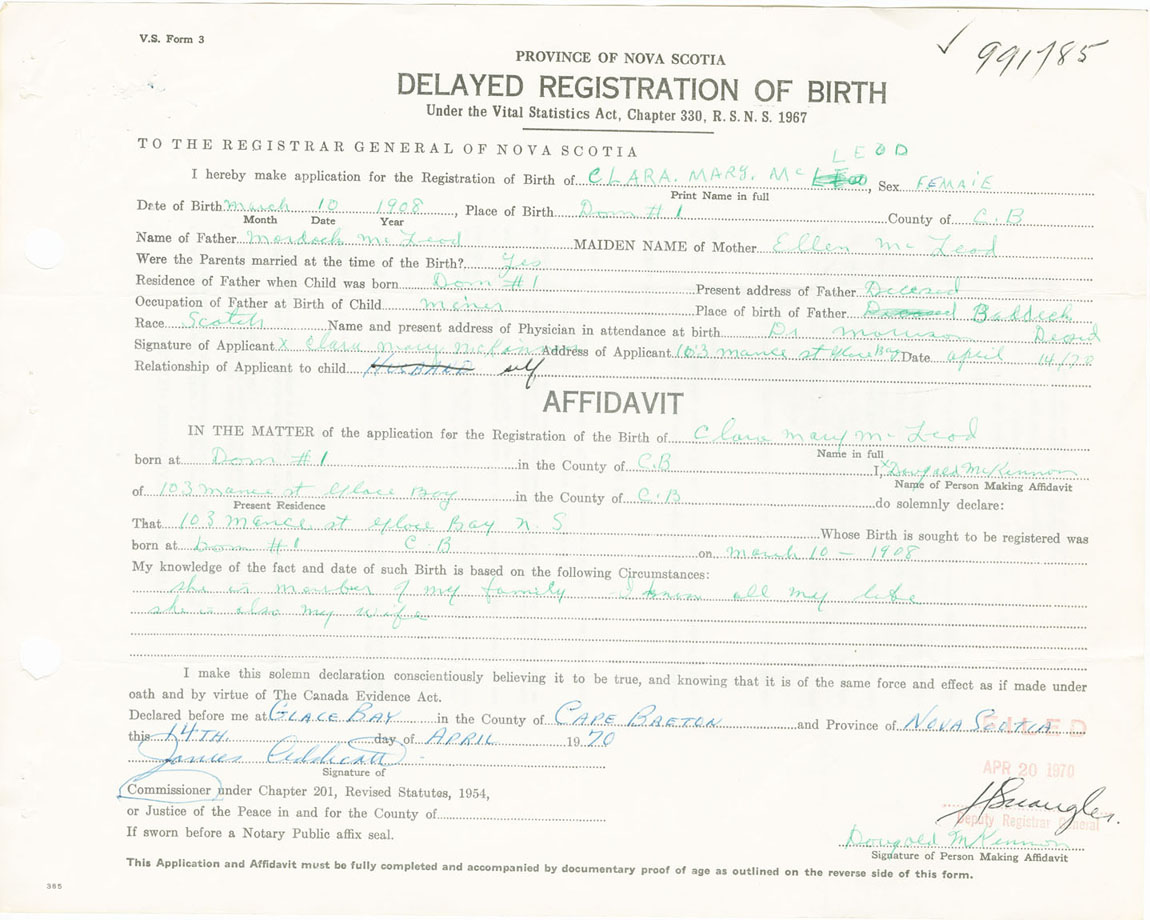 V.S. Form 3
✓ 991785
PROVINCE OF NOVA SCOTIA
DELAYED REGISTRATION OF BIRTH
Under the Vital Statistics Act, Chapter 330, R. S. N. S. 1967
TO THE REGISTRAR GENERAL OF NOVA SCOTIA
LEOD
I hereby make application for the Registration of Birth of CLARA. MARY. Mc Sex FEMAlE
Print Name in full
Date of Birth March 10 1908, Place of Birth Dom #1 County of C.B
Month Date Year
Name of Father Mordoch Mc Leod MAIDEN NAME of Mother Ellen Mc Leod
Were the Parents married at the time of the Birth? Yes
Residence of Father when Child was born Dom #1 Present address of Father Decesed
Occupation of Father at Birth of Child miner Place of birth of Father Baddeck
Race Scotch Name and present address of Physician in attendance at birth Dr Morrison Decesd
Signature of Applicant X Clara Mary McKinnon Address of Applicant 103 mance st Glace Bay Date April 14/70
Relationship of Applicant to child HUSBAND self
AFFIDAVIT
IN THE MATTER of the application for the Registration of the Birth of Clara Mary Mc Leod
Name in full
born at Dom #1 in the County of C.B I, X Dougald McKinnon
Name of Person Making Affidavit
of 103 mance st Glace Bay in the County of C.B do solemnly declare:
Present Residence
That 103 Mance st Glace Bay N.S Whose Birth is sought to be registered was
born at Dom #1 C B on March 10 - 1908
My knowledge of the fact and date of such Birth is based on the following Circumstances:
she is member of my family I know all my life
she is also my wife
I make this solemn declaration conscientiously believing it to be true, and knowing that it is of the same force and effect as if made under
oath and by virtue of The Canada Evidence Act.
Declared before me at GLACE BAY in the County of CAPE BRETON and Province of NOVA SCOTIA
FILED
this 14TH day of APRIL 1970
James
Signature of
APR 20 1970
Commissioner under Chapter 201, Revised Statutes, 1954,
or Justice of the Peace in and for the County of
Deputy Registrar General
If sworn before a Notary Public affix seal.
Dougald McKinnon
Signature of Person Making Affidavit
This Application and Affidavit must be fully completed and accompanied by documentary proof of age as outlined on the reverse side of this form.
385